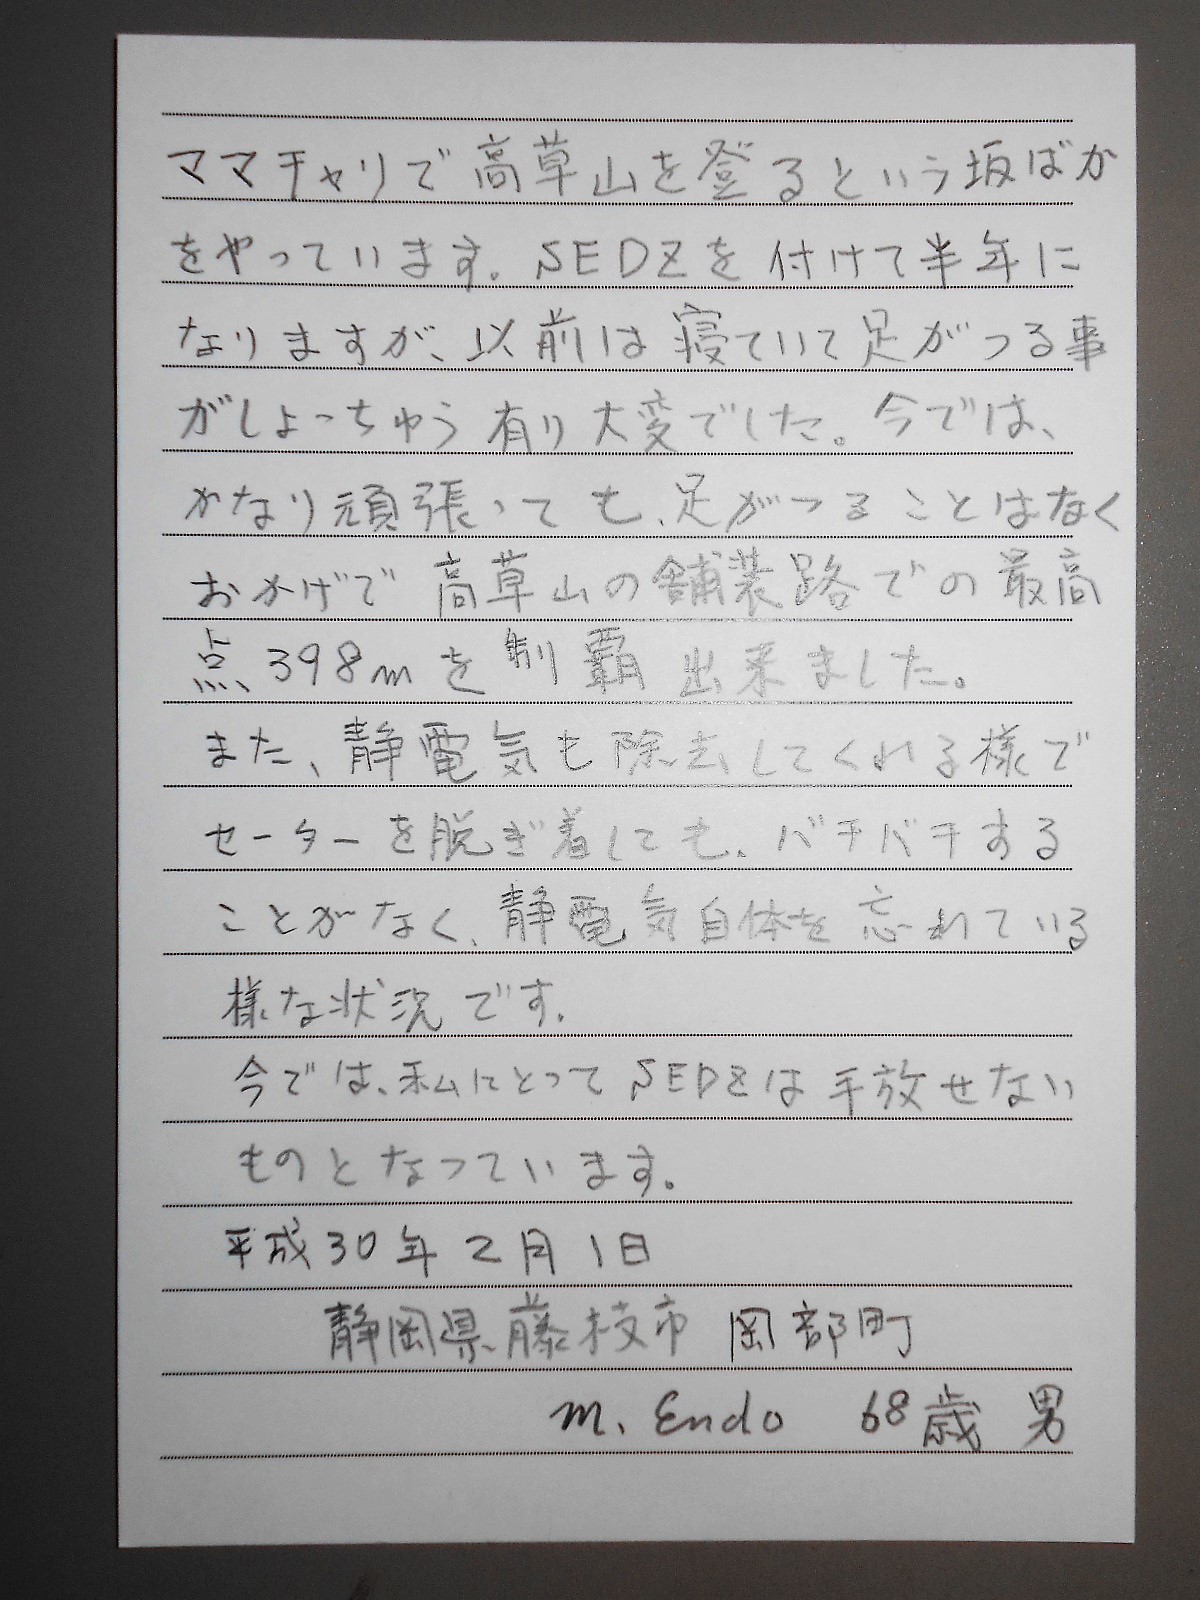 ママチャリで高草山を登るという坂ばか
をやっています。SEDZを付けて半年に
なりますが、以前は寝ていて足がつる事
がしょっちゅう有り大変でした。今では、
かなり頑張っても、足がつることはなく
おかげで高草山の舗装路での最高
点、398mを制覇出来ました。
また、静電気も除去してくれる様で
セーターを脱ぎ着しても、バチバチする
ことがなく、静電気自体を忘れている
様な状況です。
今では、私にとってSEDZは手放せない
ものとなっています。
平成30年2月1日
静岡県藤枝市 岡部町
M. Endo 68歳 男